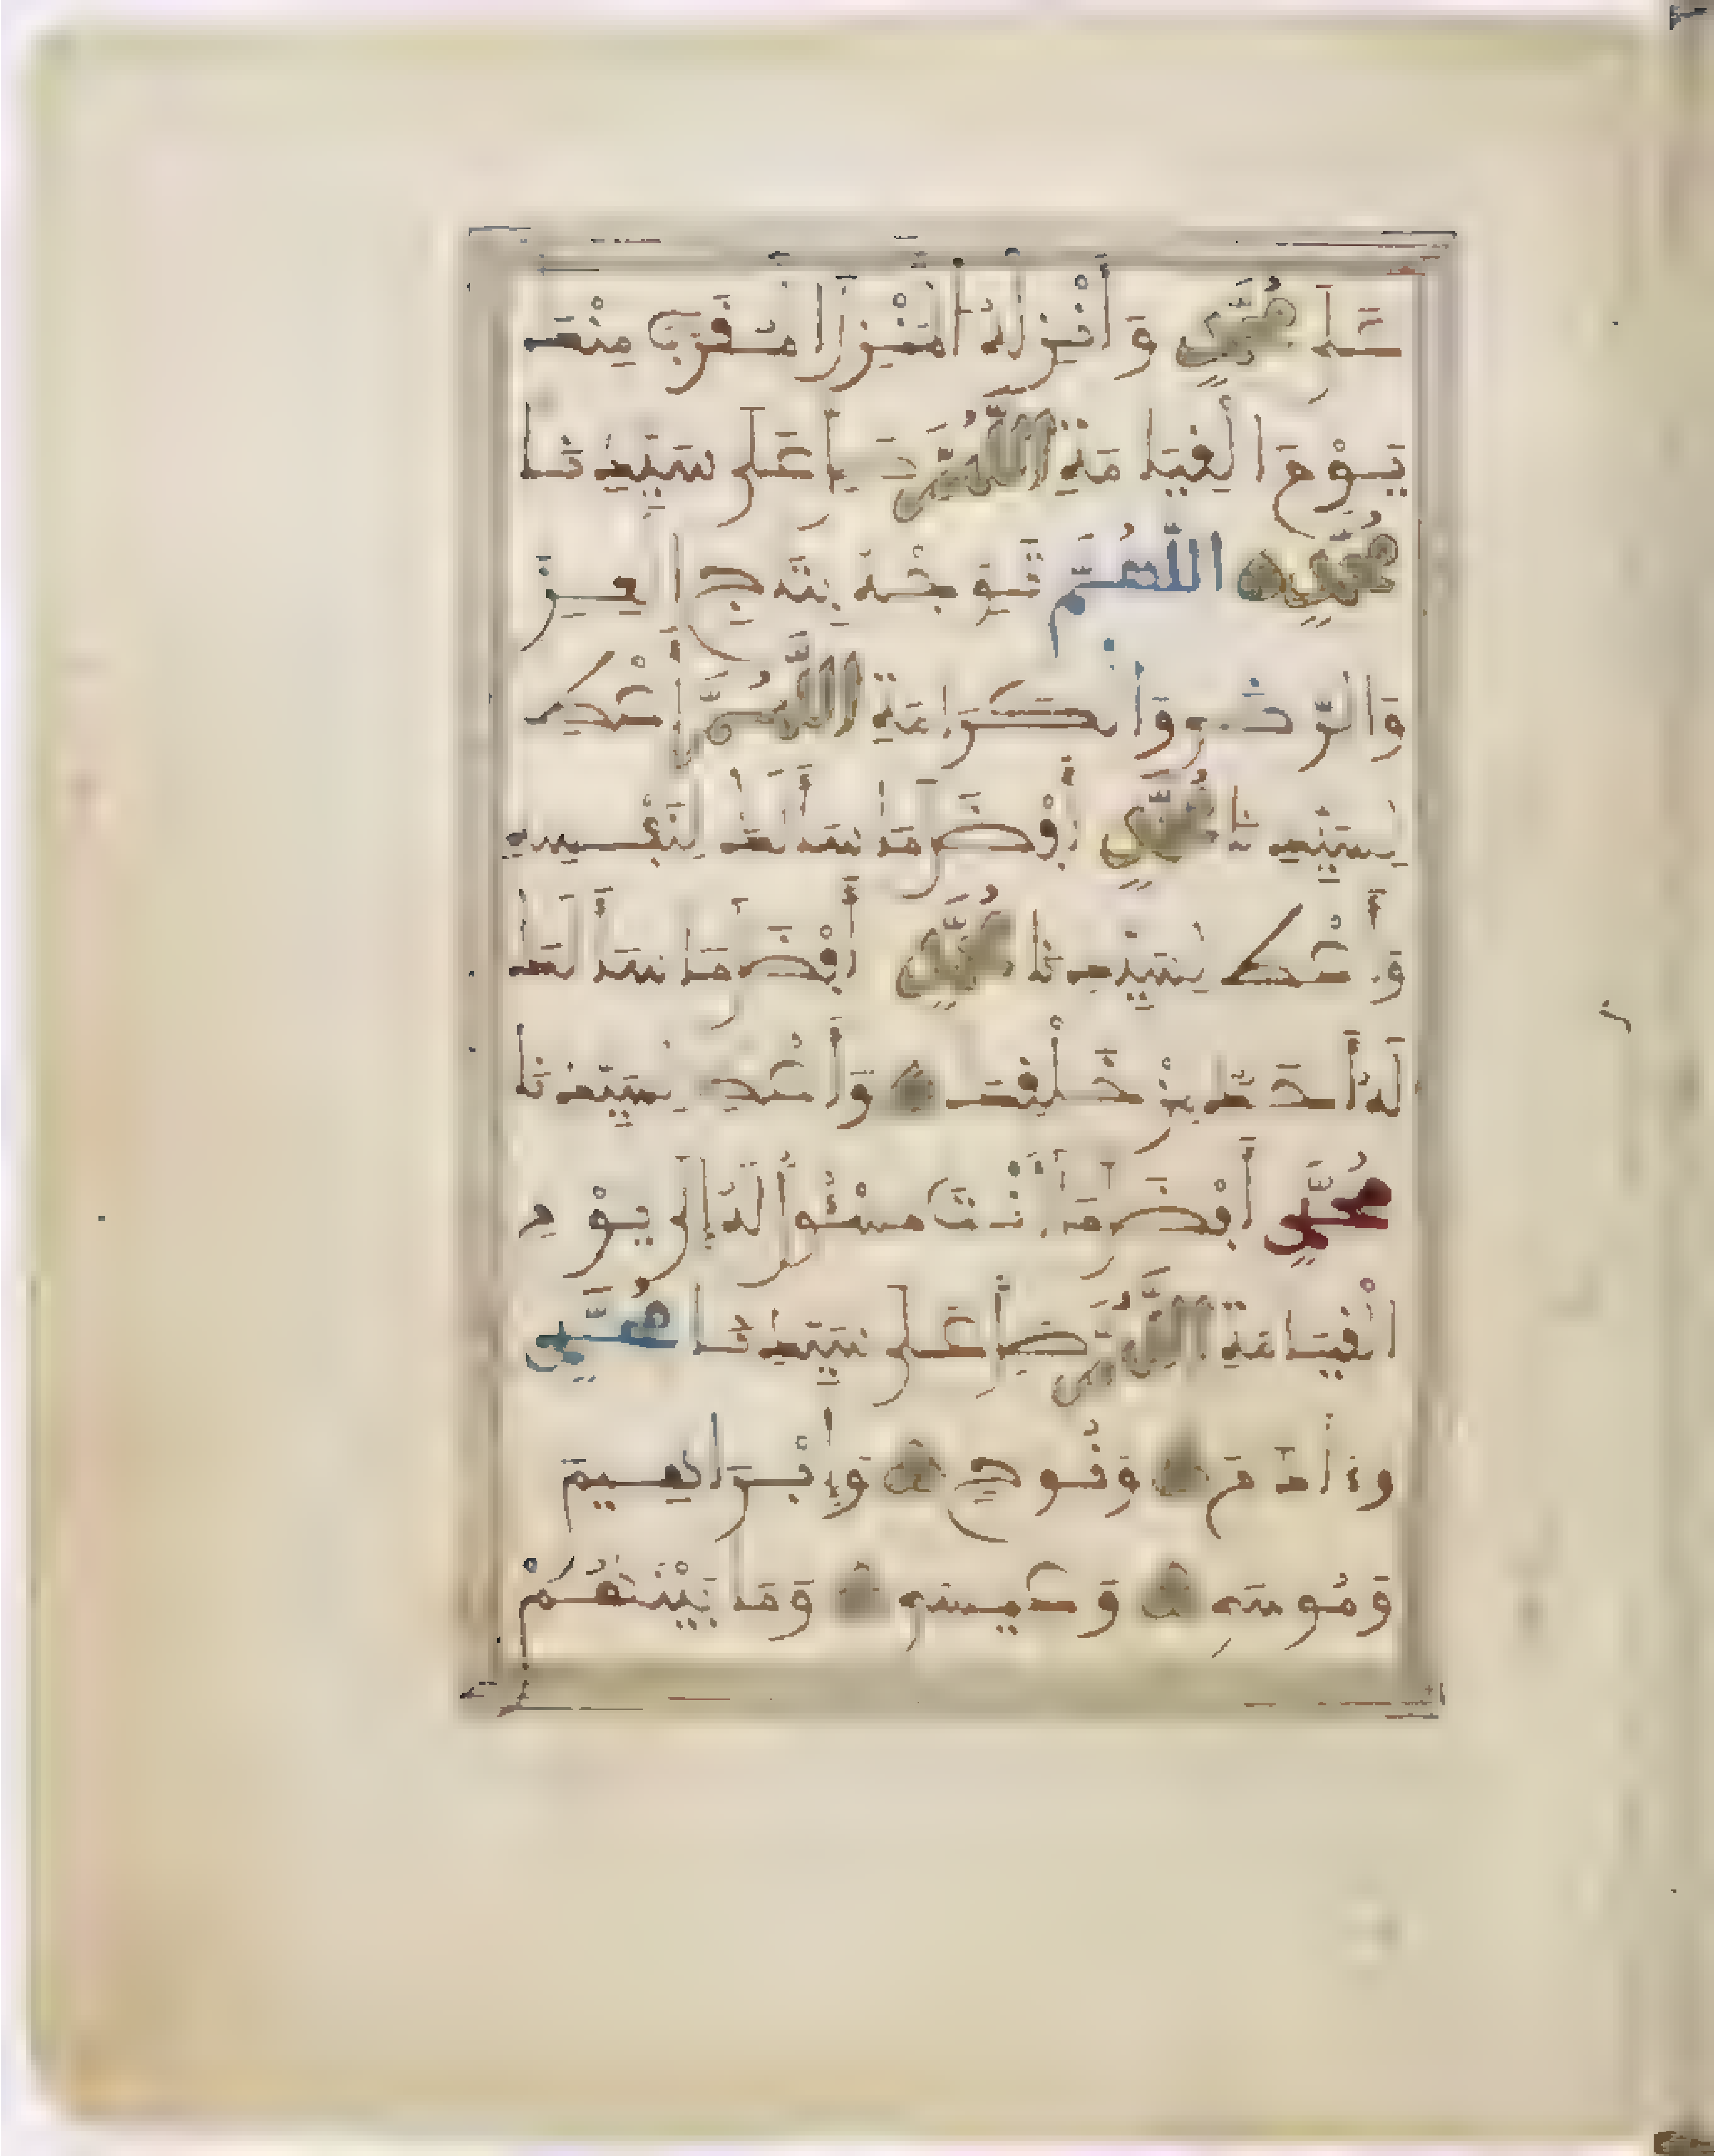 عَلَى مُحَمَّدٍ وَأَنْزِلْهُ الْمَنْزِلَ الْمُقَرَّبَ مِنْكَ
يَوْمَ الْقِيَامَةِ اللَّهُمَّ صَلِّ عَلَى سَيِّدِنَا
مُحَمَّدٍ اللَّهُمَّ تَوِّجْهُ بِتَاجِ الْعِزِّ
وَالرِّضَى وَالْكَرَامَةِ اللَّهُمَّ أَعْطِ
لِسَيِّدِنَا مُحَمَّدٍ أَفْضَلَ مَا سَأَلَكَ لِنَفْسِهِ
وَأَعْطِ لِسَيِّدِنَا مُحَمَّدٍ أَفْضَلَ مَا سَأَلَكَ
لَهُ أَحَدٌ مِنْ خَلْقِكَ وَأَعْطِ لِسَيِّدِنَا
مُحَمَّدٍ أَفْضَلَ مَا أَنْتَ مَسْئُولٌ لَهُ إِلَى يَوْمِ
الْقِيَامَةِ اللَّهُمَّ صَلِّ عَلَى سَيِّدِنَا مُحَمَّدٍ
وَءَادَمَ وَنُوحٍ وَإِبْرَاهِيمَ
وَمُوسَى وَعِيسَى وَمَا بَيْنَهُمْ